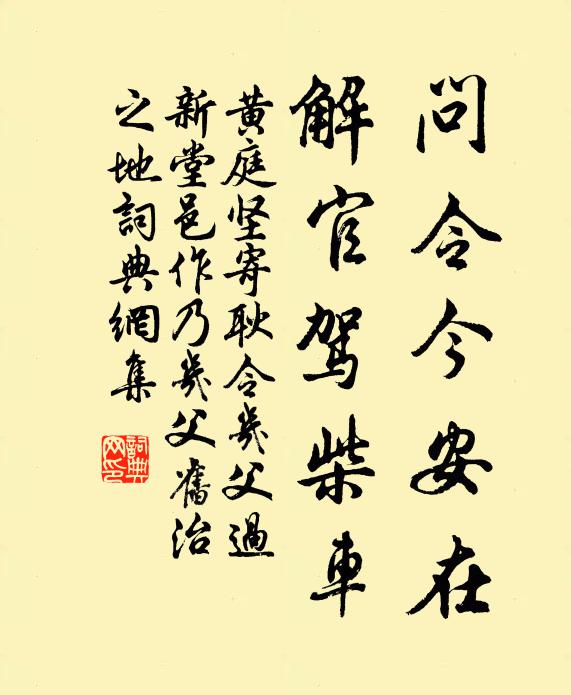 问令今安在
解官驾柴車
黄庭坚寄耿令幾父過
新堂邑作乃幾父舊治
之地詞典網集
詞典网印